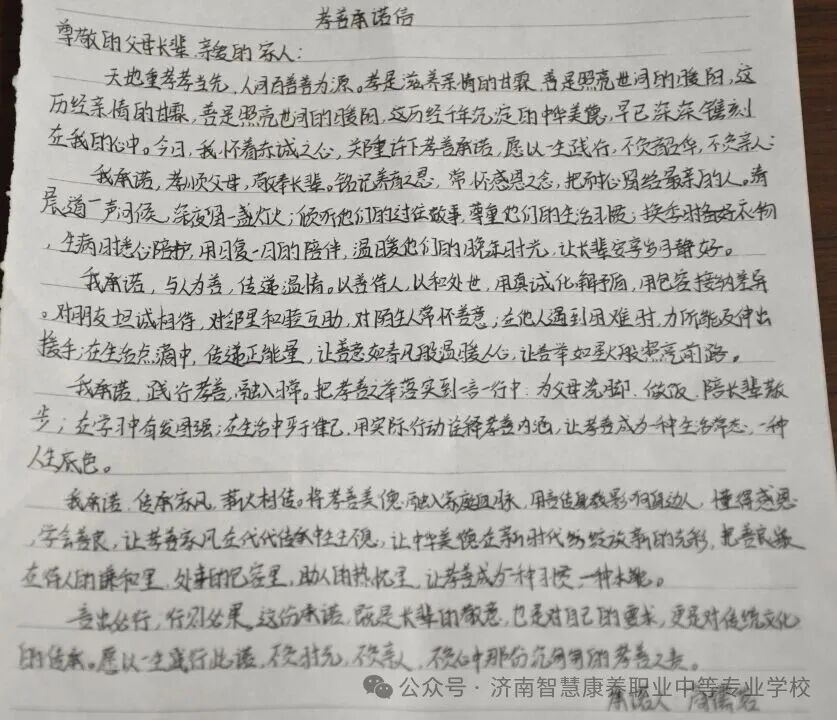 孝善承诺信
尊敬的父母长辈、亲爱的家人：
天地重孝孝当先，人间百善善为源。孝是滋养亲情的甘霖，善是照亮世间的暖阳，这
历经亲情的甘霖，善是照亮世间的暖阳，这历经千年沉淀的中华美德，早已深深镌刻
在我的心中。今日，我怀着赤诚之心，郑重许下孝善承诺，愿以一生践行，不负韶华，不负亲人：
我承诺，孝顺父母，敬奉长辈。铭记养育之恩，常怀感恩之念，把耐心留给最亲的人。清
晨道一声问候，深夜留一盏灯火；倾听他们的过往故事，尊重他们的生活习惯；换季时备好衣物
，生病时悉心陪护，用日复一日的陪伴，温暖他们的晚年时光，让长辈安享岁月静好。
我承诺，与人为善，传递温情。以善待人，以和处世，用真诚化解矛盾，用包容接纳差异
。对朋友坦诚相待，对邻里和睦互助，对陌生人常怀善意；在他人遇到困难时，力所能及伸出
援手；在生活点滴中，传递正能量，让善意如春风般温暖人心，让善举如星火般照亮前路。
我承诺，践行孝善，融入日常。把孝善之举落实到一言一行中：为父母洗脚、做饭，陪长辈散
步；在学习中奋发图强；在生活中严于律己，用实际行动诠释孝善内涵，让孝善成为一种生活常态，一种
人生底色。
我承诺，传承家风，薪火相传。将孝善美德融入家庭血脉，用言传身教影响身边人，懂得感恩
，学会善良，让孝善家风在代代传承中生生不息，让中华美德在新时代绽放新的光彩，把善良藏
在待人的谦和里，处事的包容里，助人的热忱里，让孝善成为一种习惯，一种本能。
言出必行，行则必果。这份承诺，既是长辈的敬意，也是对自己的要求，更是对传统文化
的传承。愿以一生践行此诺，不负时光，不负亲人，不负心中那份沉甸甸的孝善之责。
承诺人
公众号·济南智慧康养职业中等专业学校